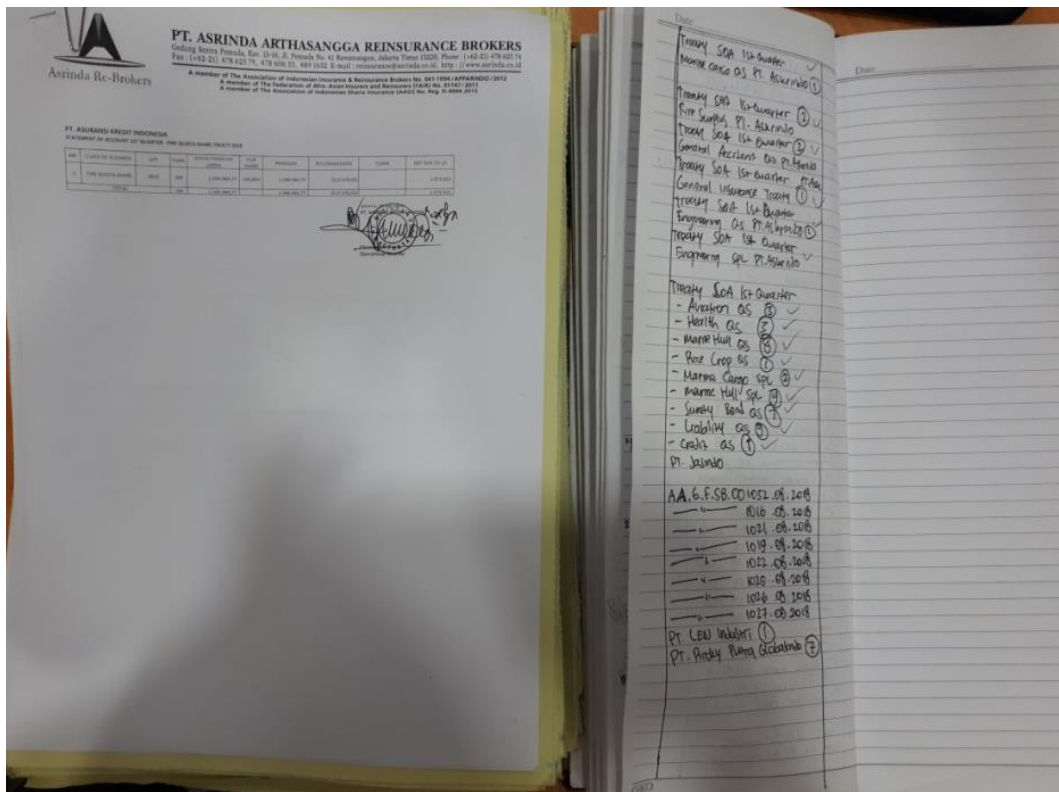 Asrinda Re-Brokers
PT. ASRINDA ARTHASANGGA REINSURANCE BROKERS
Gedung Sentra Pemuda, Kav. 15-16, Jl. Pemuda No. 61 Rawamangun, Jakarta Timur 13220, Phone : (+62-21) 478 625 74
Fax : (+62-21) 478 625 79, 478 606 33, 489 1632 E-mail : reinsurance@asrinda.co.id, http : // www.asrinda.co.id
A member of The Association of Indonesian Insurance & Reinsurance Brokers No. 041-1994 /APPARINDO/2012
A member of The Federation of Afro-Asian Insurers and Reinsurers (FAIR) No. 01147/2011
A member of The Association of Indonesian Sharia Insurance (AASI) No. Reg.
PT. ASURANSI KREDIT INDONESIA
STATEMENT OF ACCOUNT 1ST QUARTER - FIRE QUOTA SHARE TREATY 2018
CLASS OF BUSINESS PREMIUM R/I COMMISSION CLAIM
FIRE QUOTA SHARE
TOTAL
Date
Treaty SOA 1st Quarter
Marine Cargo QS PT. Askrindo 1
Treaty SOA 1st Quarter 2
Fire Surplus PT. Askrindo
Treaty SOA 1st Quarter 3
General Accident QS PT. Askrindo
Treaty SOA 1st Quarter
General Insurance Treaty 1
Treaty SOA 1st Quarter
Engineering QS PT. Askrindo
Treaty SOA 1st Quarter
Engineering SPL PT. Askrindo
Treaty SOA 1st Quarter
- Aviation QS 3
- Health QS 3
- Marine Hull QS 8
- Rice Crop QS 1
- Marine Cargo SPL 2
- Marine Hull SPL 9
- Surety Bond QS 7
- Liability QS 9
- Credit QS 1
PT. Jasindo
AA.G.F.SB.001052.08.2018
1016.08.2018
1021.08.2018
1019.08.2018
1022.08.2018
1025.08.2018
1026.08.2018
1027.08.2018
PT. LEN Industri 1
PT. Putra Globalindo 7
Date